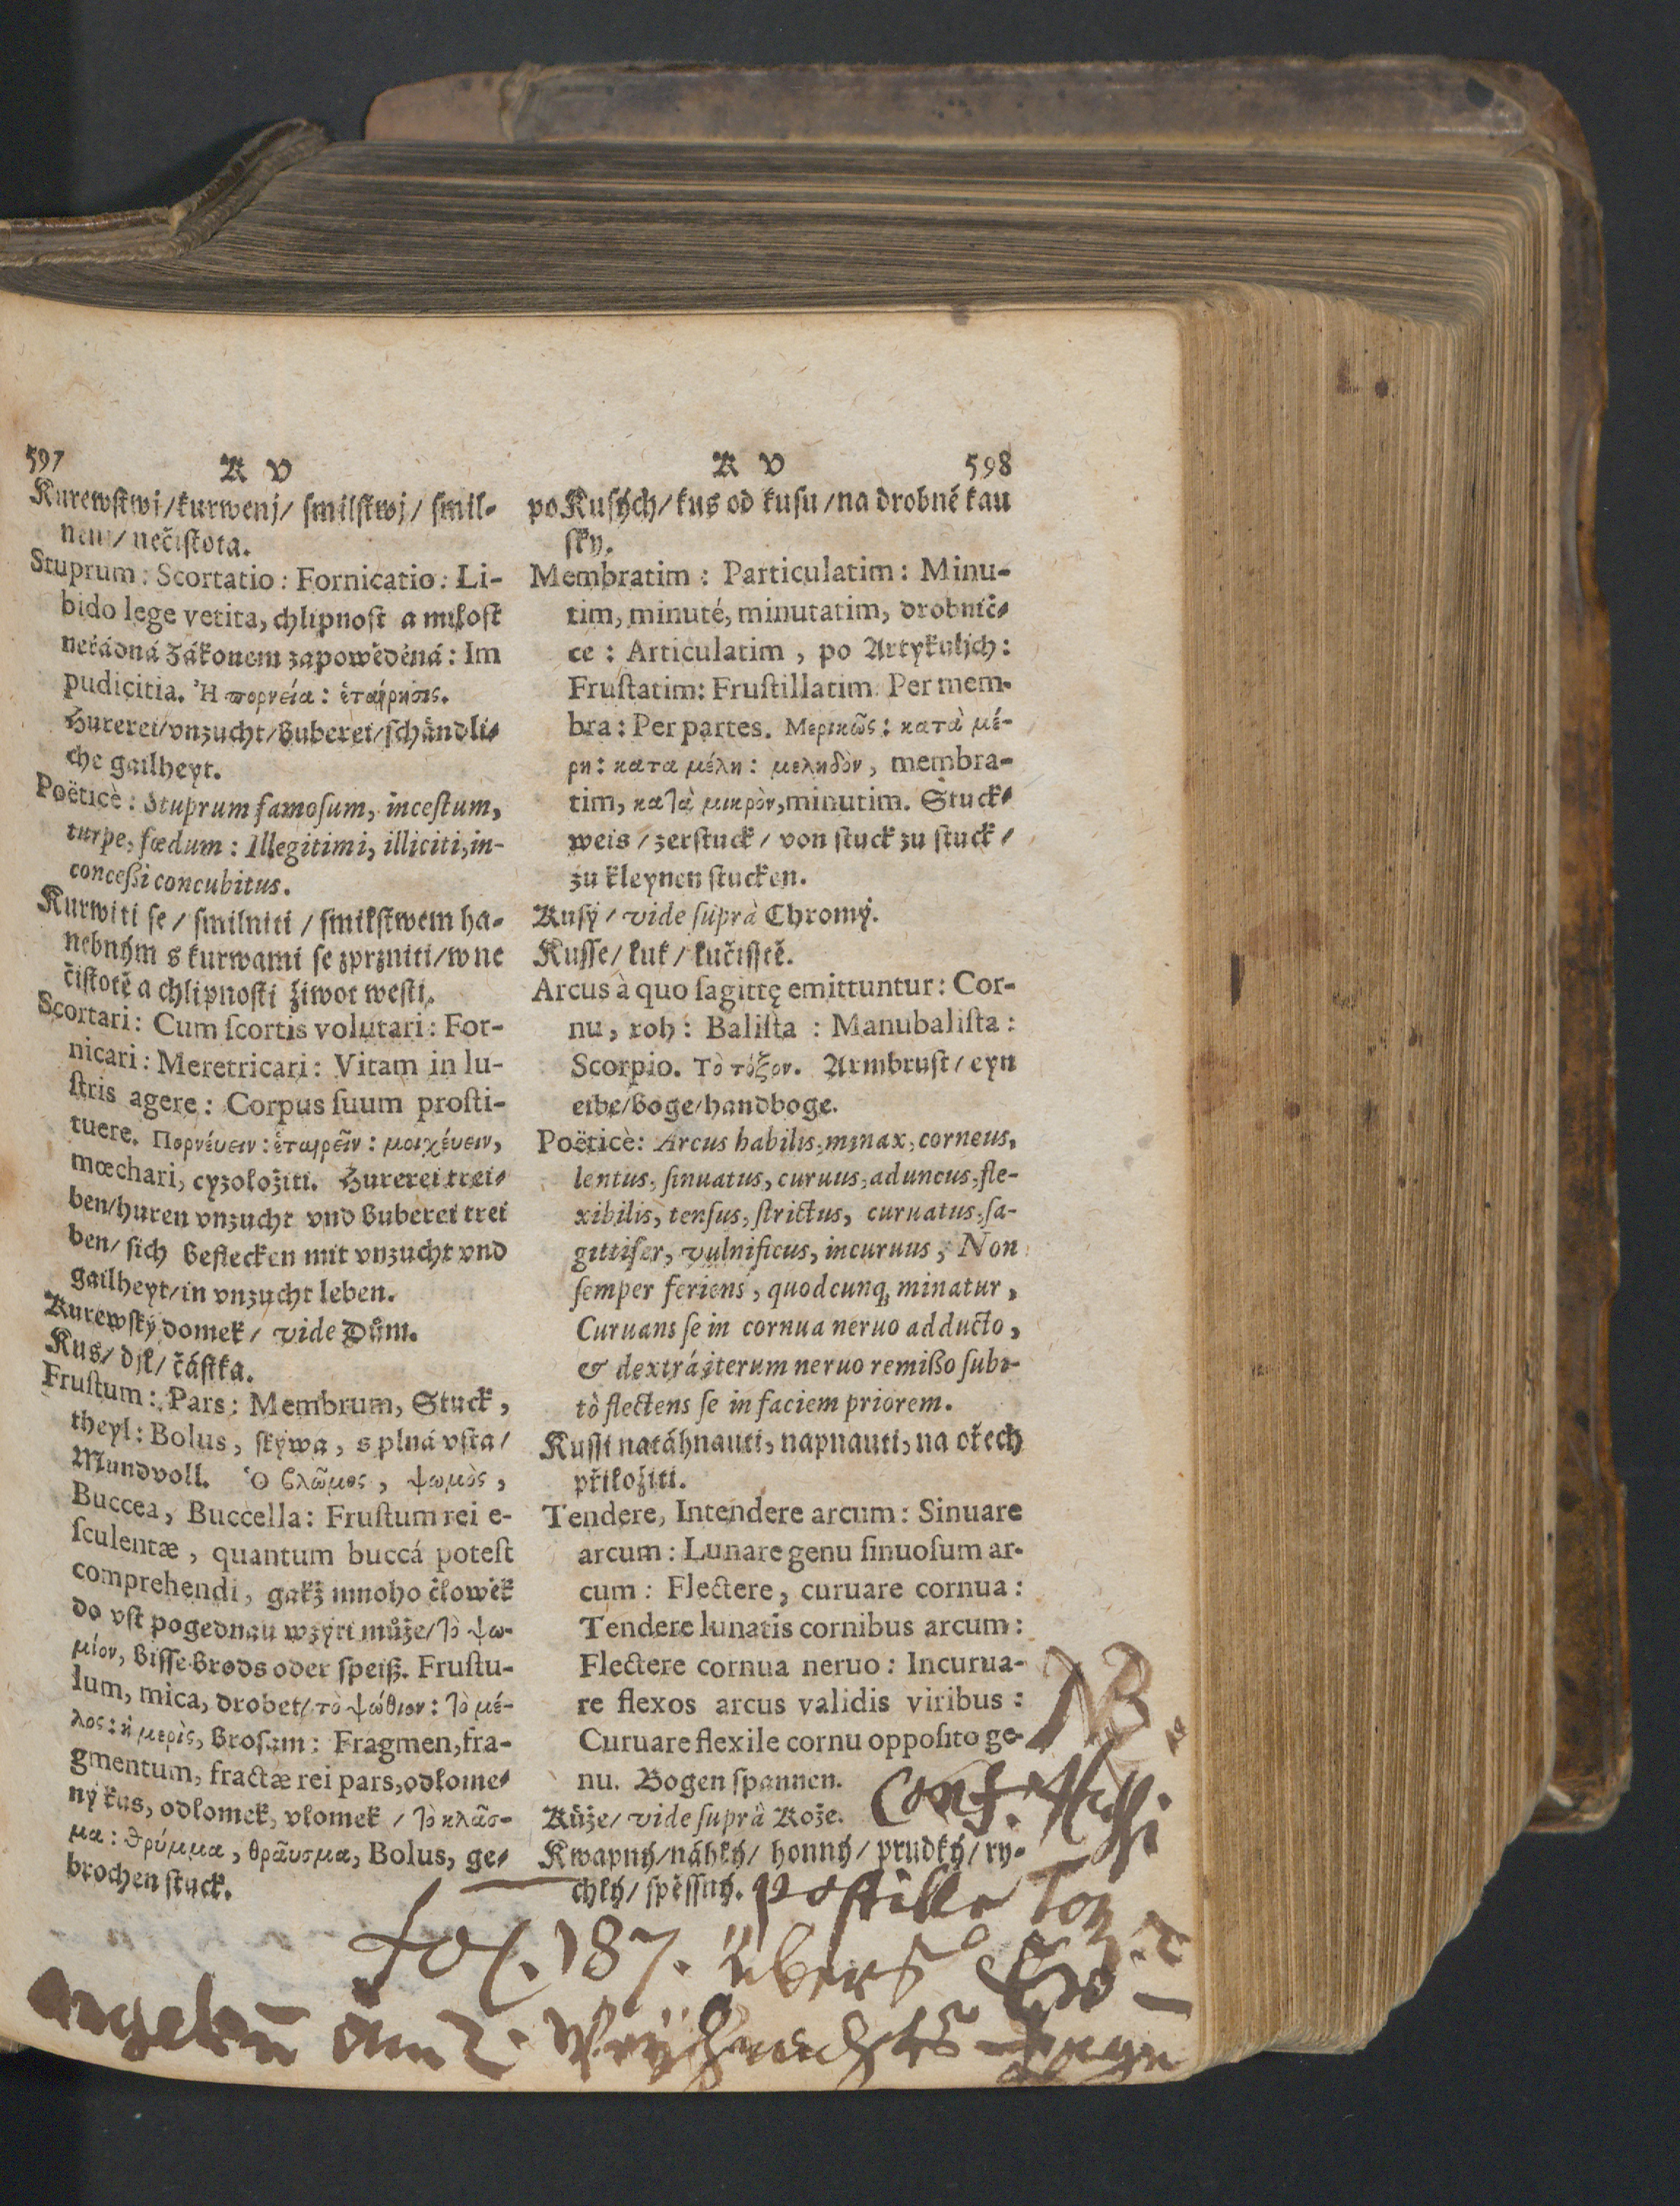 597
K V
Kurewſtwj/kurwenj/ ſmilſtwj/ ſmil-
nenj/ nečiſtota.
Stuprum: Scortatio: Fornicatio: Li-
bido lege vetita, chlipnoſt a miloſt
neřádná Zákonem zapowěděná: Im
pudicitia. Ἡ πορνεία: ἑταίρησις.
Hurerei/vnzucht/Buberei/ſchändli-
che gailheyt.
Poëticè: Stuprum famoſum, inceſtum,
turpe, fœdum: Illegitimi, illiciti, in-
conceßi concubitus.
Kurwiti ſe/ ſmilniti / ſmilſtwem ha-
nebným s kurwami ſe zprzniti/w ne
čiſtotě a chlipnoſti žiwot weſti.
Scortari: Cum ſcortis volutari: For-
nicari: Meretricari: Vitam in lu-
ſtris agere: Corpus ſuum proſti-
tuere. Πορνέυειν: ἑταιρεῖν: μοιχέυειν,
mœchari, cyzoložiti. Hurerei trei-
ben/huren vnzucht vnd Buberei trei
ben/ ſich Beflecken mit vnzucht vnd
gailheyt/in vnzucht leben.
Kurewſký domek/ vide Dům.
Kus/ djl/ čáſtka.
Fruſtum: Pars: Membrum, Stuck,
theyl: Bolus, ſkýwa, s plná vſta/
Mundvoll. Ὁ βλῶμος, ψωμὸς,
Buccea, Buccella: Fruſtum rei e-
ſculentæ, quantum buccá poteſt
comprehendi, gakž mnoho člowěk
do vſt pogednau wzýti může/τὸ ψω-
μίον, Biſſe Brods oder ſpeiß. Fruſtu-
lum, mica, drobet/ τὸ ψώθιον: τὸ μέ-
λος: ἡ μερὶς, Broſam: Fragmen, fra-
gmentum, fractæ rei pars, odlome-
ný kus, odlomek, vlomek / τὸ κλᾶσ-
μα: θρύμμα, θραῦσμα, Bolus, ge-
brochen ſtuck.
K V
598
po Kuſých/ kus od kuſu/na drobné kau
ſky.
Membratim: Particulatim: Minu-
tim, minuté, minutatim, drobníč-
ce: Articulatim, po Artykuljch:
Fruſtatim: Fruſtillatim. Per mem-
bra: Per partes. Μερικῶς: κατὰ μέ-
ρη: κατα μέλη: μεληδὸν, membra-
tim, κατὰ μικρὸν, minutim. Stuck-
weis / zerſtuck / von ſtuck zu ſtuck /
zu kleynen ſtucken.
Kuſý / vide ſuprà Chromý.
Kuſſe/ kuk / kučiſſtě.
Arcus à quo ſagittę emittuntur: Cor-
nu, roh: Baliſta: Manubaliſta:
Scorpio. Τὸ τόξον. Armbruſt/ eyn
eibe/Boge/handboge.
Poëticè: Arcus habilis, minax, corneus,
lentus, ſinuatus, curuus, aduncus, fle-
xibilis, tenſus, ſtrictus, curuatus, ſa-
gittifer, vulnificus, incuruus, Non
ſemper feriens, quodcunq, minatur,
Curuans ſe in cornua neruo adducto,
& dextrá, iterum neruo remißo ſubi-
tò flectens ſe in faciem priorem.
Kuſſi natáhnauti, napnauti, na ořech
přiložiti.
Tendere, Intendere arcum: Sinuare
arcum: Lunare genu ſinuoſum ar-
cum: Flectere, curuare cornua:
Tendere lunatis cornibus arcum:
Flectere cornua neruo: Incurua-
re flexos arcus validis viribus:
Curuare flexile cornu oppoſito ge-
nu. Bogen ſpannen.
Kůže/ vide ſuprà Kože.
Kwapný/náhlý/ honný/ prudký/ ry-
chlý/ ſpěſſný.
NB.
Conf.
Postilla
fol. 187. übers
am 2.